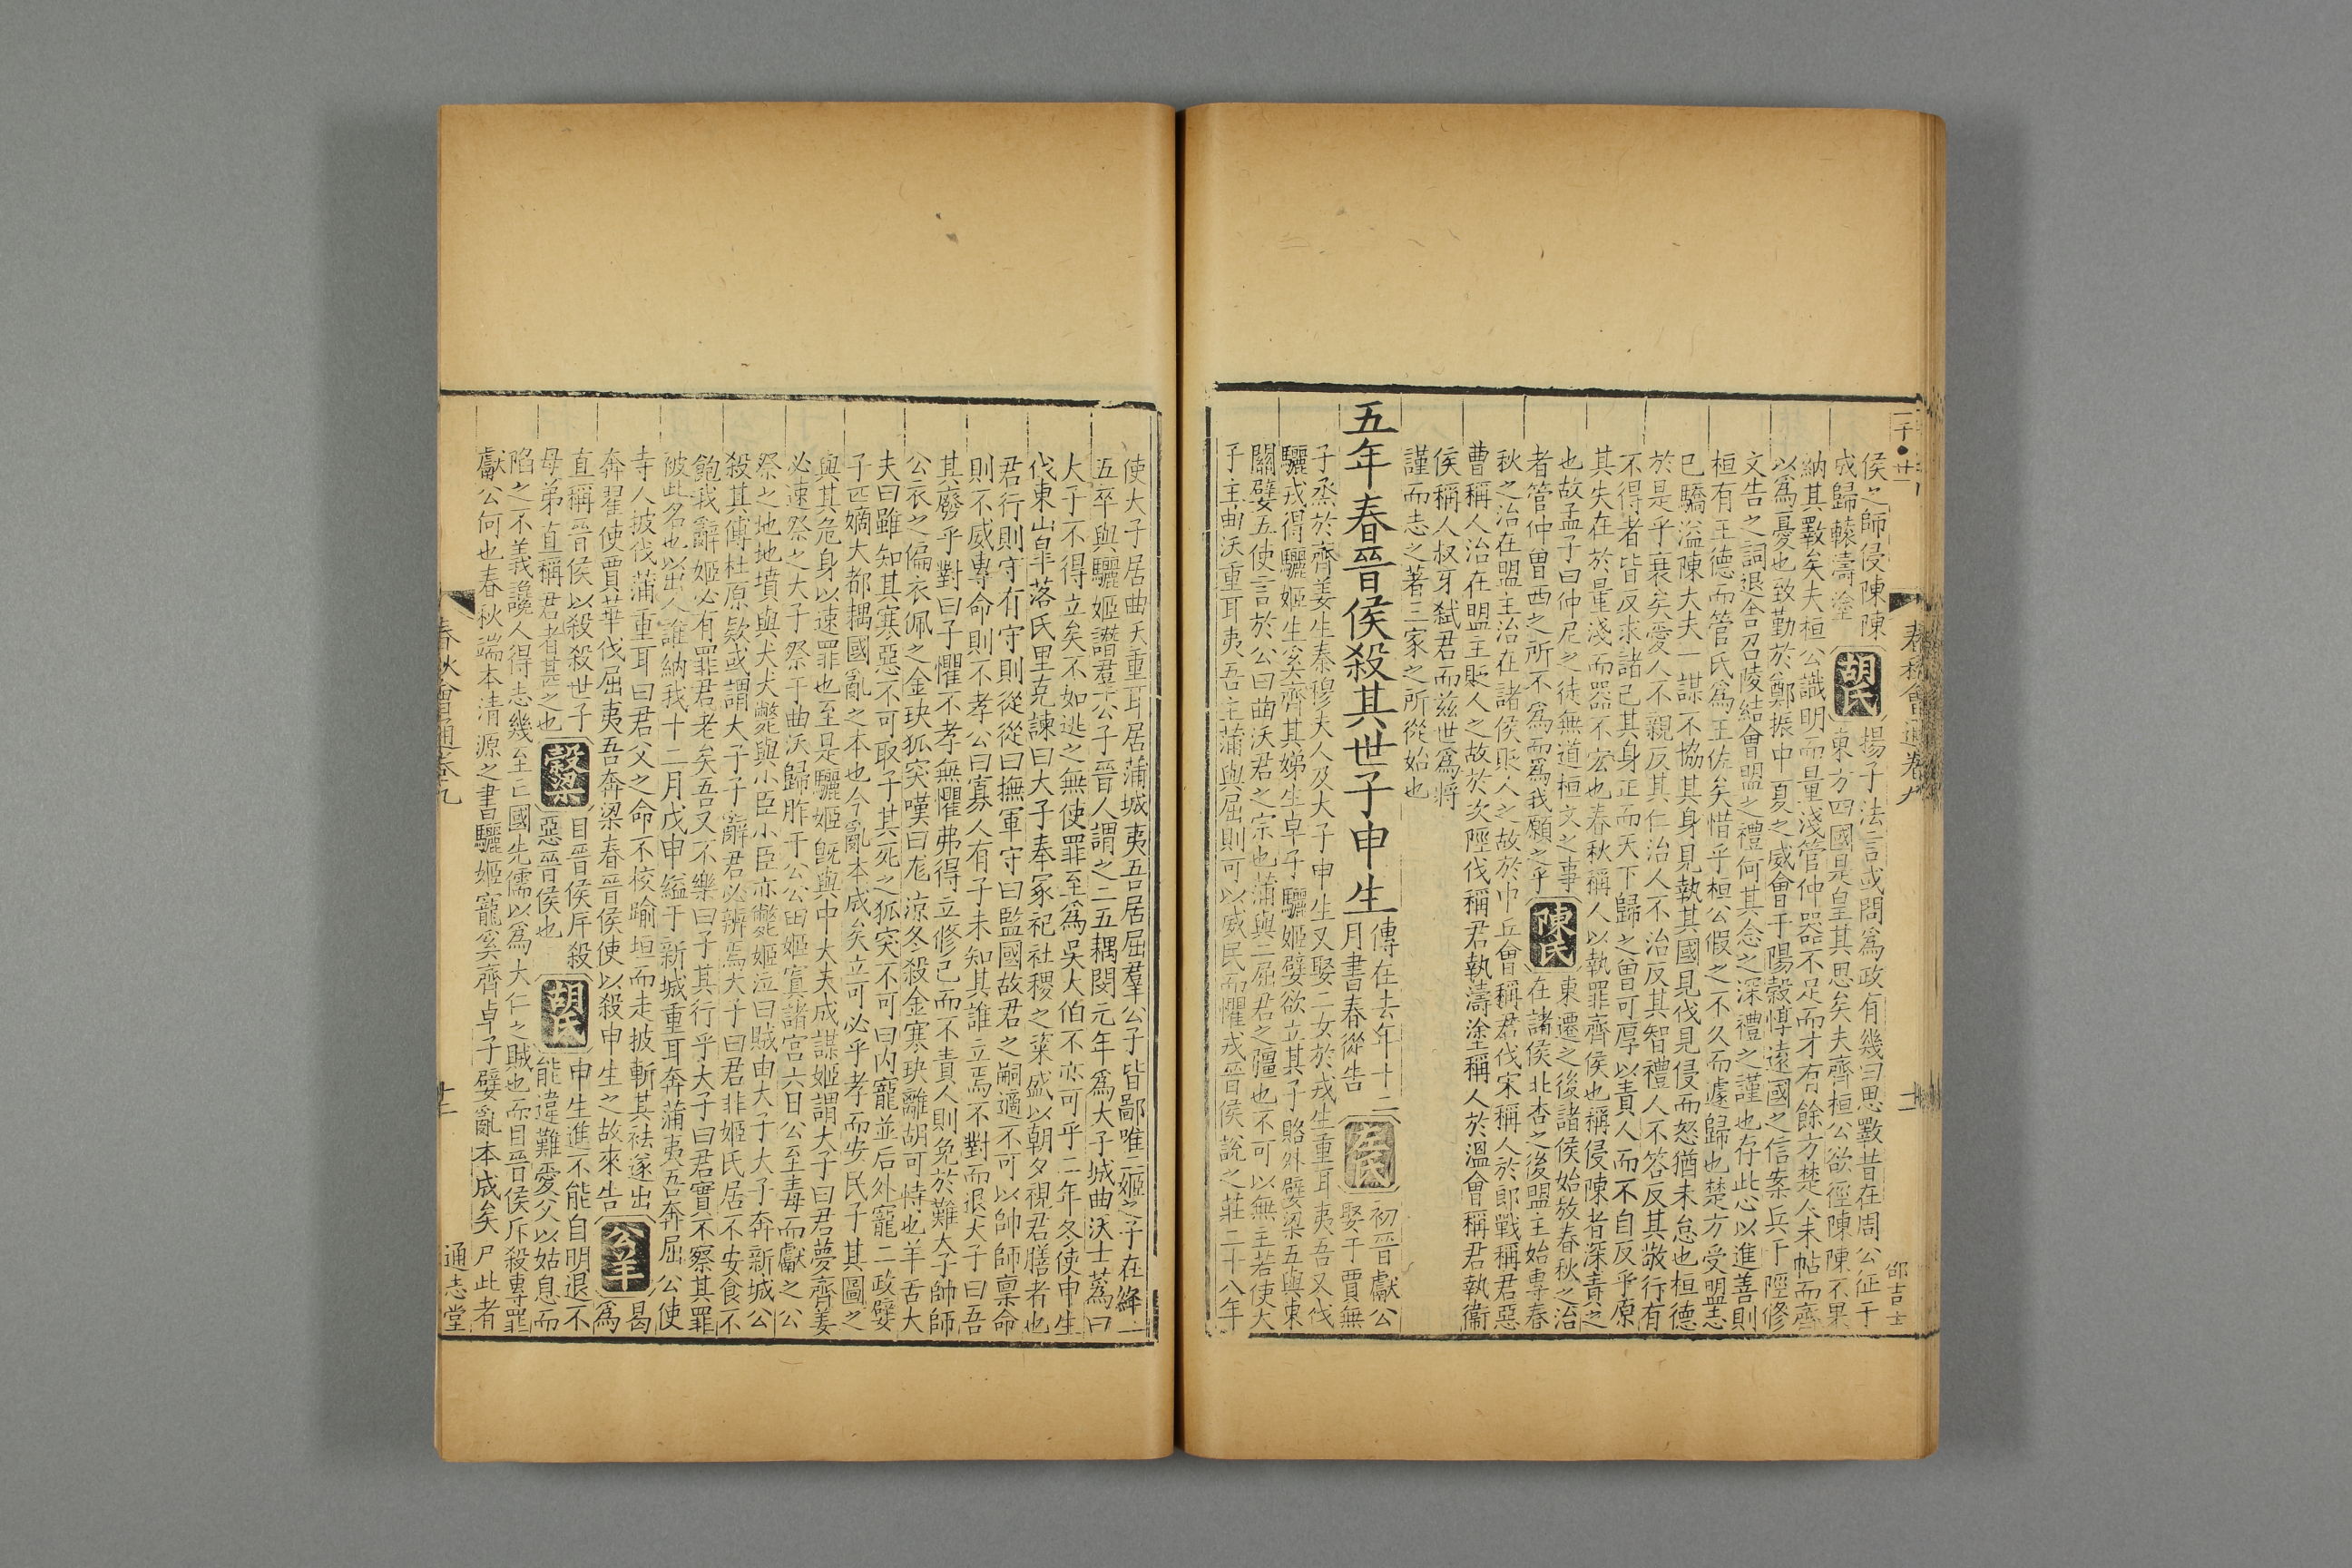 二千●廿一
春秋會通卷九
十一
邰吉士
侯之師侵陳陳
成歸轅濤塗
胡氏
揚子法言或問爲政有幾曰思斁昔在周公征于
東方四國是皇其思矣夫齊桓公欲徑陳陳不果
納其斁矣夫桓公識明而量淺管仲器不足而才有餘方楚人未帖而齊
以爲憂也致勤於鄭振中夏之威會于陽穀惇遠國之信案兵于陘修
文告之詞退舍召陵結會盟之禮何其念之深禮之謹也存此心以進善則
桓有王德而管氏爲王佐矣惜乎桓公假之不久而遽歸也楚方受盟志
已驕溢陳大夫一謀不協其身見執其國見伐見侵而怒猶未怠也桓德
於是乎衰矣愛人不親反其仁治人不治反其智禮人不答反其敬行有
不得者皆反求諸己其身正而天下歸之曾可厚以責人而不自反乎原
其失在於量淺而器不宏也春秋稱人以執罪齊侯也稱侵陳者深責之
也故孟子曰仲尼之徒無道桓文之事
者管仲曾西之所不爲而爲我願之乎
陳氏
東遷之後諸侯始放春秋之治
在諸侯北杏之後盟主始專春
秋之治在盟主治在諸侯貶人之故於巾丘會稱君伐宋稱人於郎戰稱君惡
曹稱人治在盟主貶人之故於次陘伐稱君執濤塗稱人於溫會稱君執衞
侯稱人叔牙弑君而兹世爲將
謹而志之著三家之所從始也
五年春晉侯殺其世子申生
傳在去年十二
月書春從告
左氏
初晉獻公
娶于賈無
子烝於齊姜生秦穆夫人及大子申生又娶二女於戎生重耳夷吾又伐
驪戎得驪姬生奚齊其娣生卓子驪姬嬖欲立其子賂外嬖梁五與東
關嬖五使言於公曰曲沃君之宗也蒲與二屈君之疆也不可以無主若使大
子主曲沃重耳夷吾主蒲與屈則可以威民而懼戎晉侯說之莊二十八年
使大子居曲沃重耳居蒲城夷吾居屈羣公子皆鄙唯二姬之子在絳二
五卒與驪姬譖羣公子晉人謂之二五耦閔元年爲大子城曲沃士蔿曰
大子不得立矣不如逃之無使罪至爲吳大伯不亦可乎二年冬使申生
伐東山皐落氏里克諫曰大子奉冢祀社稷之粢盛以朝夕視君膳者也
君行則守有守則從從曰撫軍守曰監國故君之嗣適不可以帥師稟命
則不威專命則不孝公曰寡人有子未知其誰立焉不對而退大子曰吾
其廢乎對曰子懼不孝無懼弗得立修己而不責人則免於難大子帥師
公衣之偏衣佩之金玦狐突嘆曰尨涼冬殺金寒玦離胡可恃也羊舌大
夫曰雖知其寒惡不可取子其死之狐突不可曰内寵並后外寵二政嬖
子匹嫡大都耦國亂之本也今亂本成矣立可必乎孝而安民子其圖之
與其危身以速罪也至是驪姬旣與中大夫成謀姬謂大子曰君夢齊姜
必速祭之大子祭于曲沃歸胙于公公田姬寘諸宫六日公至毒而獻之公
祭之地地墳與犬犬斃與小臣小臣亦斃姬泣曰賊由大子大子奔新城公
殺其傅杜原款或謂大子子辭君必辨焉大子曰君非姬氏居不安食不
飽我辭姬必有罪君老矣吾又不樂曰子其行乎大子曰君實不察其罪
被此名也以出人誰納我十二月戊申縊于新城重耳奔蒲夷吾奔屈公使
寺人披伐蒲重耳曰君父之命不校踰垣而走披斬其袪遂出
奔翟使賈華伐屈夷吾奔梁春晉侯使以殺申生之故來告
公羊
曷
爲
直稱晉侯以殺殺世子
母弟直稱君者甚之也
穀梁
目晉侯斥殺
惡晉侯也
胡氏
申生進不能自明退不
能違難愛父以姑息而
陷之不義讒人得志幾至亡國先儒以爲大仁之賊也而目晉侯斥殺專罪
獻公何也春秋端本清源之書驪姬寵奚齊卓子嬖亂本成矣尸此者
春秋會通卷九
十一
通志堂